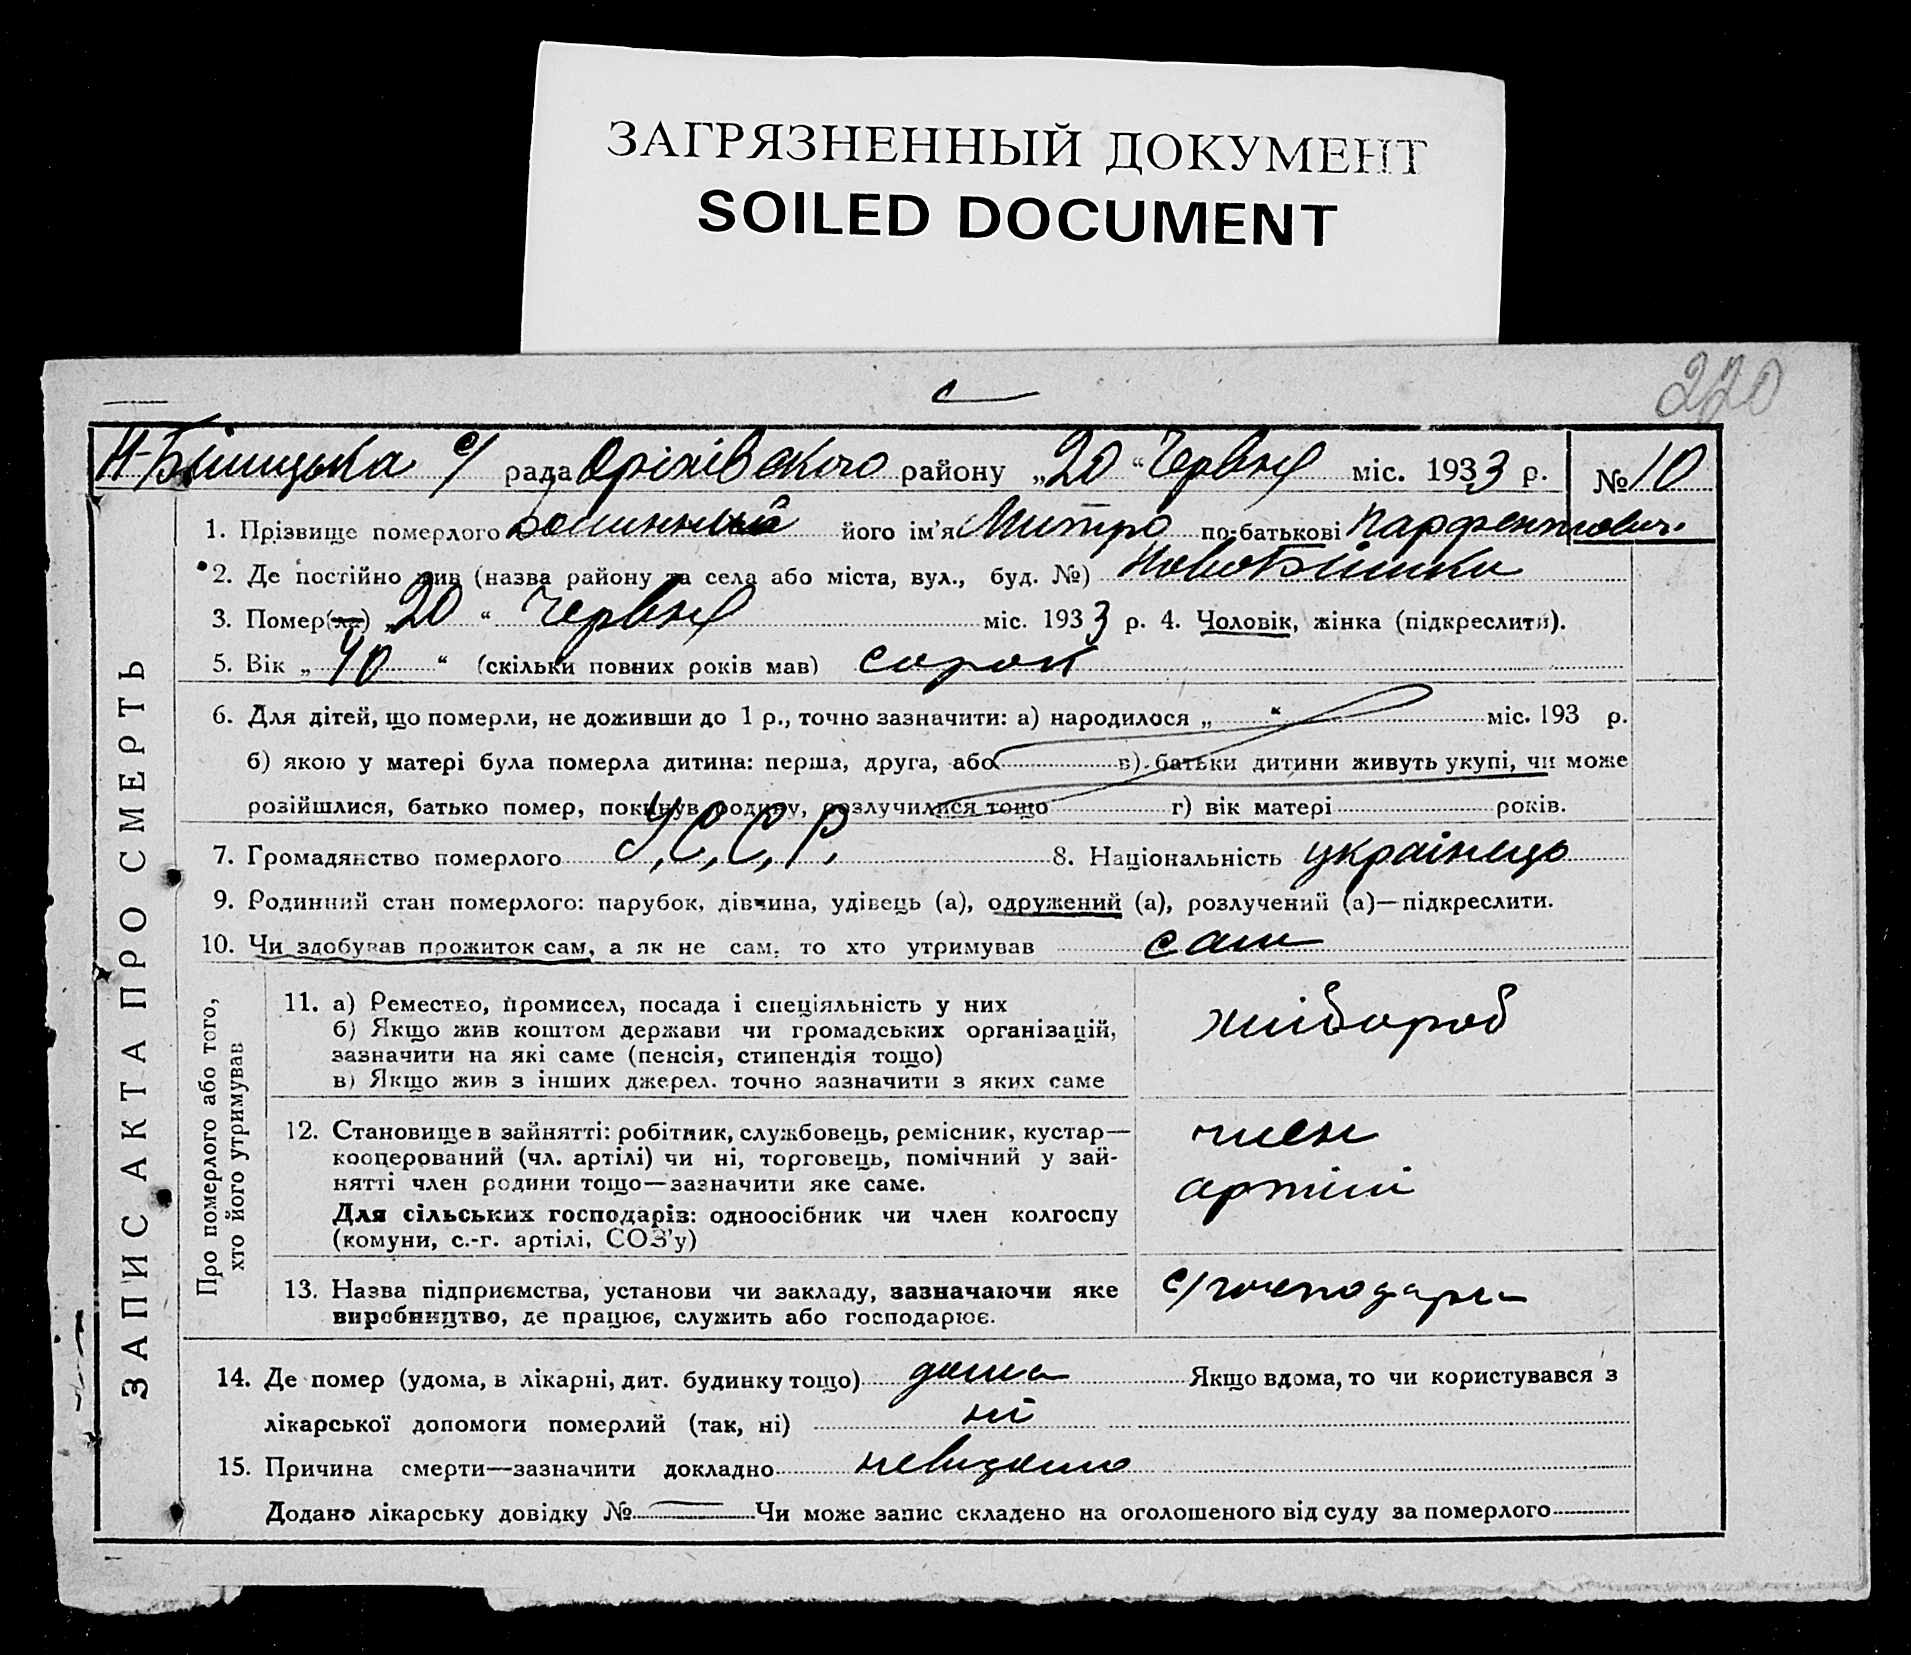 ЗАГРЯЗНЕННЫЙ ДОКУМЕНТ
SOILED DOCUMENT
220
с/ рада Оріхівского району „20“ Червня міс. 1933 р. № 10
1. Прізвище померлого його ім'я Митро по-батькові Парфентиович
2. Де постійно жив (назва району та села або міста, вул., буд. №)
3. Помер(ла) „20“ Червня міс. 1933 р. 4. Чоловік, жінка (підкреслити).
5. Вік „40“ (скільки повних років мав) сорок
6. Для дітей, що померли, не доживши до 1 р., точно зазначити: а) народилося „ “ міс. 193 р.
б) якою у матері була померла дитина: перша, друга, або в) батьки дитини живуть укупі, чи може
розійшлися, батько помер, покинув родину, розлучилися тощо г) вік матері років.
7. Громадянство померлого У.С.С.Р. 8. Національність українець
9. Родинний стан померлого: парубок, дівчина, удівець (а), одружений (а), розлучений (а)—підкреслити.
10. Чи здобував прожиток сам, а як не сам, то хто утримував сам
ЗАПИС АКТА ПРО СМЕРТЬ
Про померлого або того,
хто його утримував
11. а) Ремество, промисел, посада і спеціяльність у них
б) Якщо жив коштом держави чи громадських організацій,
зазначити на які саме (пенсія, стипендія тощо)
в) Якщо жив з інших джерел. точно зазначити з яких саме
хлібороб
12. Становище в зайнятті: робітник, службовець, ремісник, кустар—
кооперований (чл. артілі) чи ні, торговець, помічний у зай-
нятті член родини тощо—зазначити яке саме.
Для сільських господарів: одноосібник чи член колгоспу
(комуни, с.-г. артілі, СОЗ'у)
член
артілі
13. Назва підприємства, установи чи закладу, зазначаючи яке
виробництво, де працює, служить або господарює.
с/господарк
14. Де помер (удома, в лікарні, дит. будинку тощо) дома Якщо вдома, то чи користувався з
лікарської допомоги померлий (так, ні) ні
15. Причина смерти—зазначити докладно невидомо
Додано лікарську довідку № Чи може запис складено на оголошеного від суду за померлого